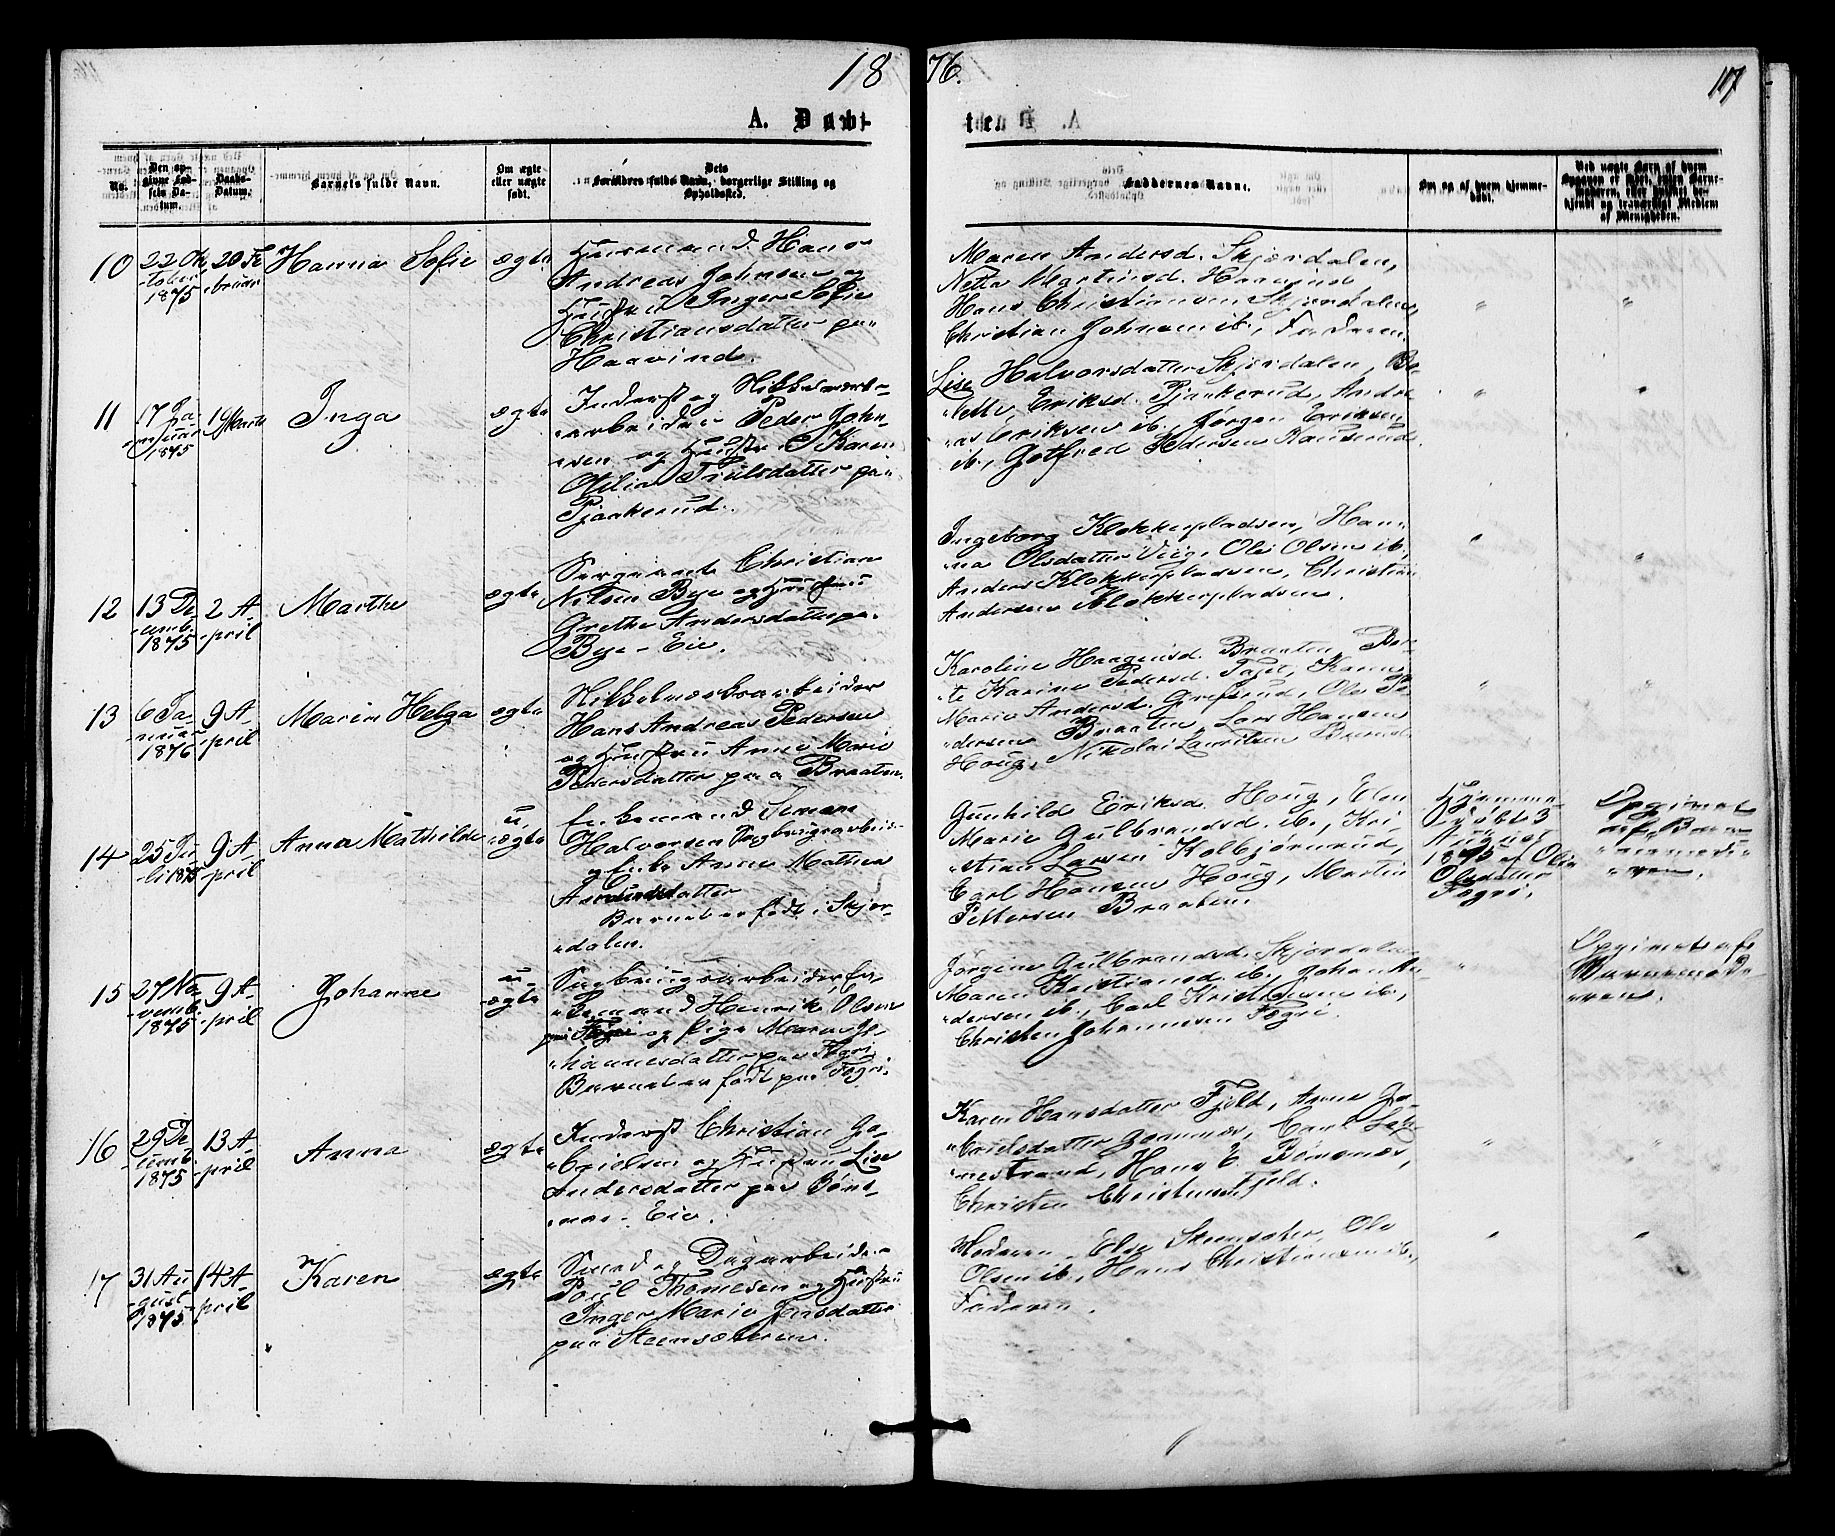 1876.
107
A. Døbte
No.
Den opgivne Fødsels Datum.
Daabs-Datum.
Barnets fulde Navn.
Om ægte eller uægte født.
Dets Forældres fulde Navn, borgerlige Stilling og Opholdssted.
Faddernes Navne.
Om og af hvem hjemmedøbt.
10
22 Ok-
-tober
1875
20 Fe
-bruar
Hanna Sofie
ægte
Huusmand Hans
Andreas Johnsen og
Hustru Inger Sofie
Christiansdatter paa
Haavind.
Maren Andersd. Skjærdalen,
Netta Martinsd. Haavind
Hans Christiansen Skjærdalen,
Christian Johnsen ib., Faderen.
"
"
11
17 Ja-
-nuar
1875
19 Marts
Inga
ægte
Inderst og Nikkelværks-
-arbeider Peder John-
-sen og Hustru Karen
Otilia Trulsdatter paa
Pjaakerud.
Lise Halvorsdatter Skjærdalen, Be-
-lette Eriksd. Pjaakerud, Andre
-as Eriksen ib., Jørgen Eriksen
ib., Gotfred Pedersen
"
"
12
13 De
-cemb.
1875
2 A-
-pril
Marthe
ægte
Sergeant Christian
Nilsen Bye og Hustru
Grethe Andersdatter paa
Bye-Eie.
Ingeborg Klokkerpladsen, Han-
-na Olsdatter Viig, Ole Olsen ib.,
Anders Klokkerpladsen, Christian
Andersen Klokkerpladsen.
"
"
13
6 Ja-
-nuar
1876
9 A-
-pril
Maren Helga
ægte
Nikkelværksarbeider
Hans Andreas Pedersen
og Hustru Anne Marie
Pedersdatter paa Braaten.
Karoline Haagensd. Braaten, Ber-
-te Karine Pedersd.
Marie Andersd. Grefsrud, Ole Pe-
-dersen Braaten, Lars Hansen
Houg, Nikolai Lauritsen
"
"
14
25 Ju-
-li 1875
9 A-
-pril
Anna Mathilde
u-
-ægte
Enkemand Simen
Halvorsen Sagbrugsarbeider
og Enke Anne Mathea
Amundsdatter
Barnet er født i Skjær-
-dalen.
Gunhild Eriksd. Houg, Elen
Marie Gulbrandsd. ib., Kri-
-stian Larsen Kolbjørnrud,
Carl Hansen Houg, Martin
Pettersen Braaten.
Hjemme-
døbt 3
August
1875 af Olia
Olsdatter
Fogri.
Opgivet
af Barne-
-mode-
-ren.
15
27 No-
-vemb.
1875
9 A-
-pril
Johanne
u-
-ægte
Sagbrugsarbeider, En-
-kemand Henrik Olsen
og Pige Maren Jo-
-hannesdatter paa Fogri
Barnet er født paa Fogri.
Jørgine Gulbrandsd. Skjærdalen
Maren Kristiansd. ib., Johan An-
-dersen ib., Carl Kristiansen ib.,
Christen Johannesen Fogri.
"
Opgivet af
Barnemode-
-ren.
16
29 De
-cemb.
1875
13 A-
-pril
Anna
ægte
Inderst Christian Ga-
-brielsen og Hustru Lise
Andersdatter paa Bøns-
-næs-Eie.
Karen Hansdatter Fjeld, Anne Ga-
-brielsdatter Carl
Hans E. Bønsnæs,
Christen Christensen Fjeld.
"
"
17
31 Au-
-gust
1875
14 A-
-pril
Karen
ægte
Smed og Dagarbeider
Poul Thomesen og Hustru
Inger Marie Jensdatter
paa Steensæteren.
Moderen, Else Steensæter, Ole
Olsen ib., Hans Christiansen ib.,
Faderen.
"
"